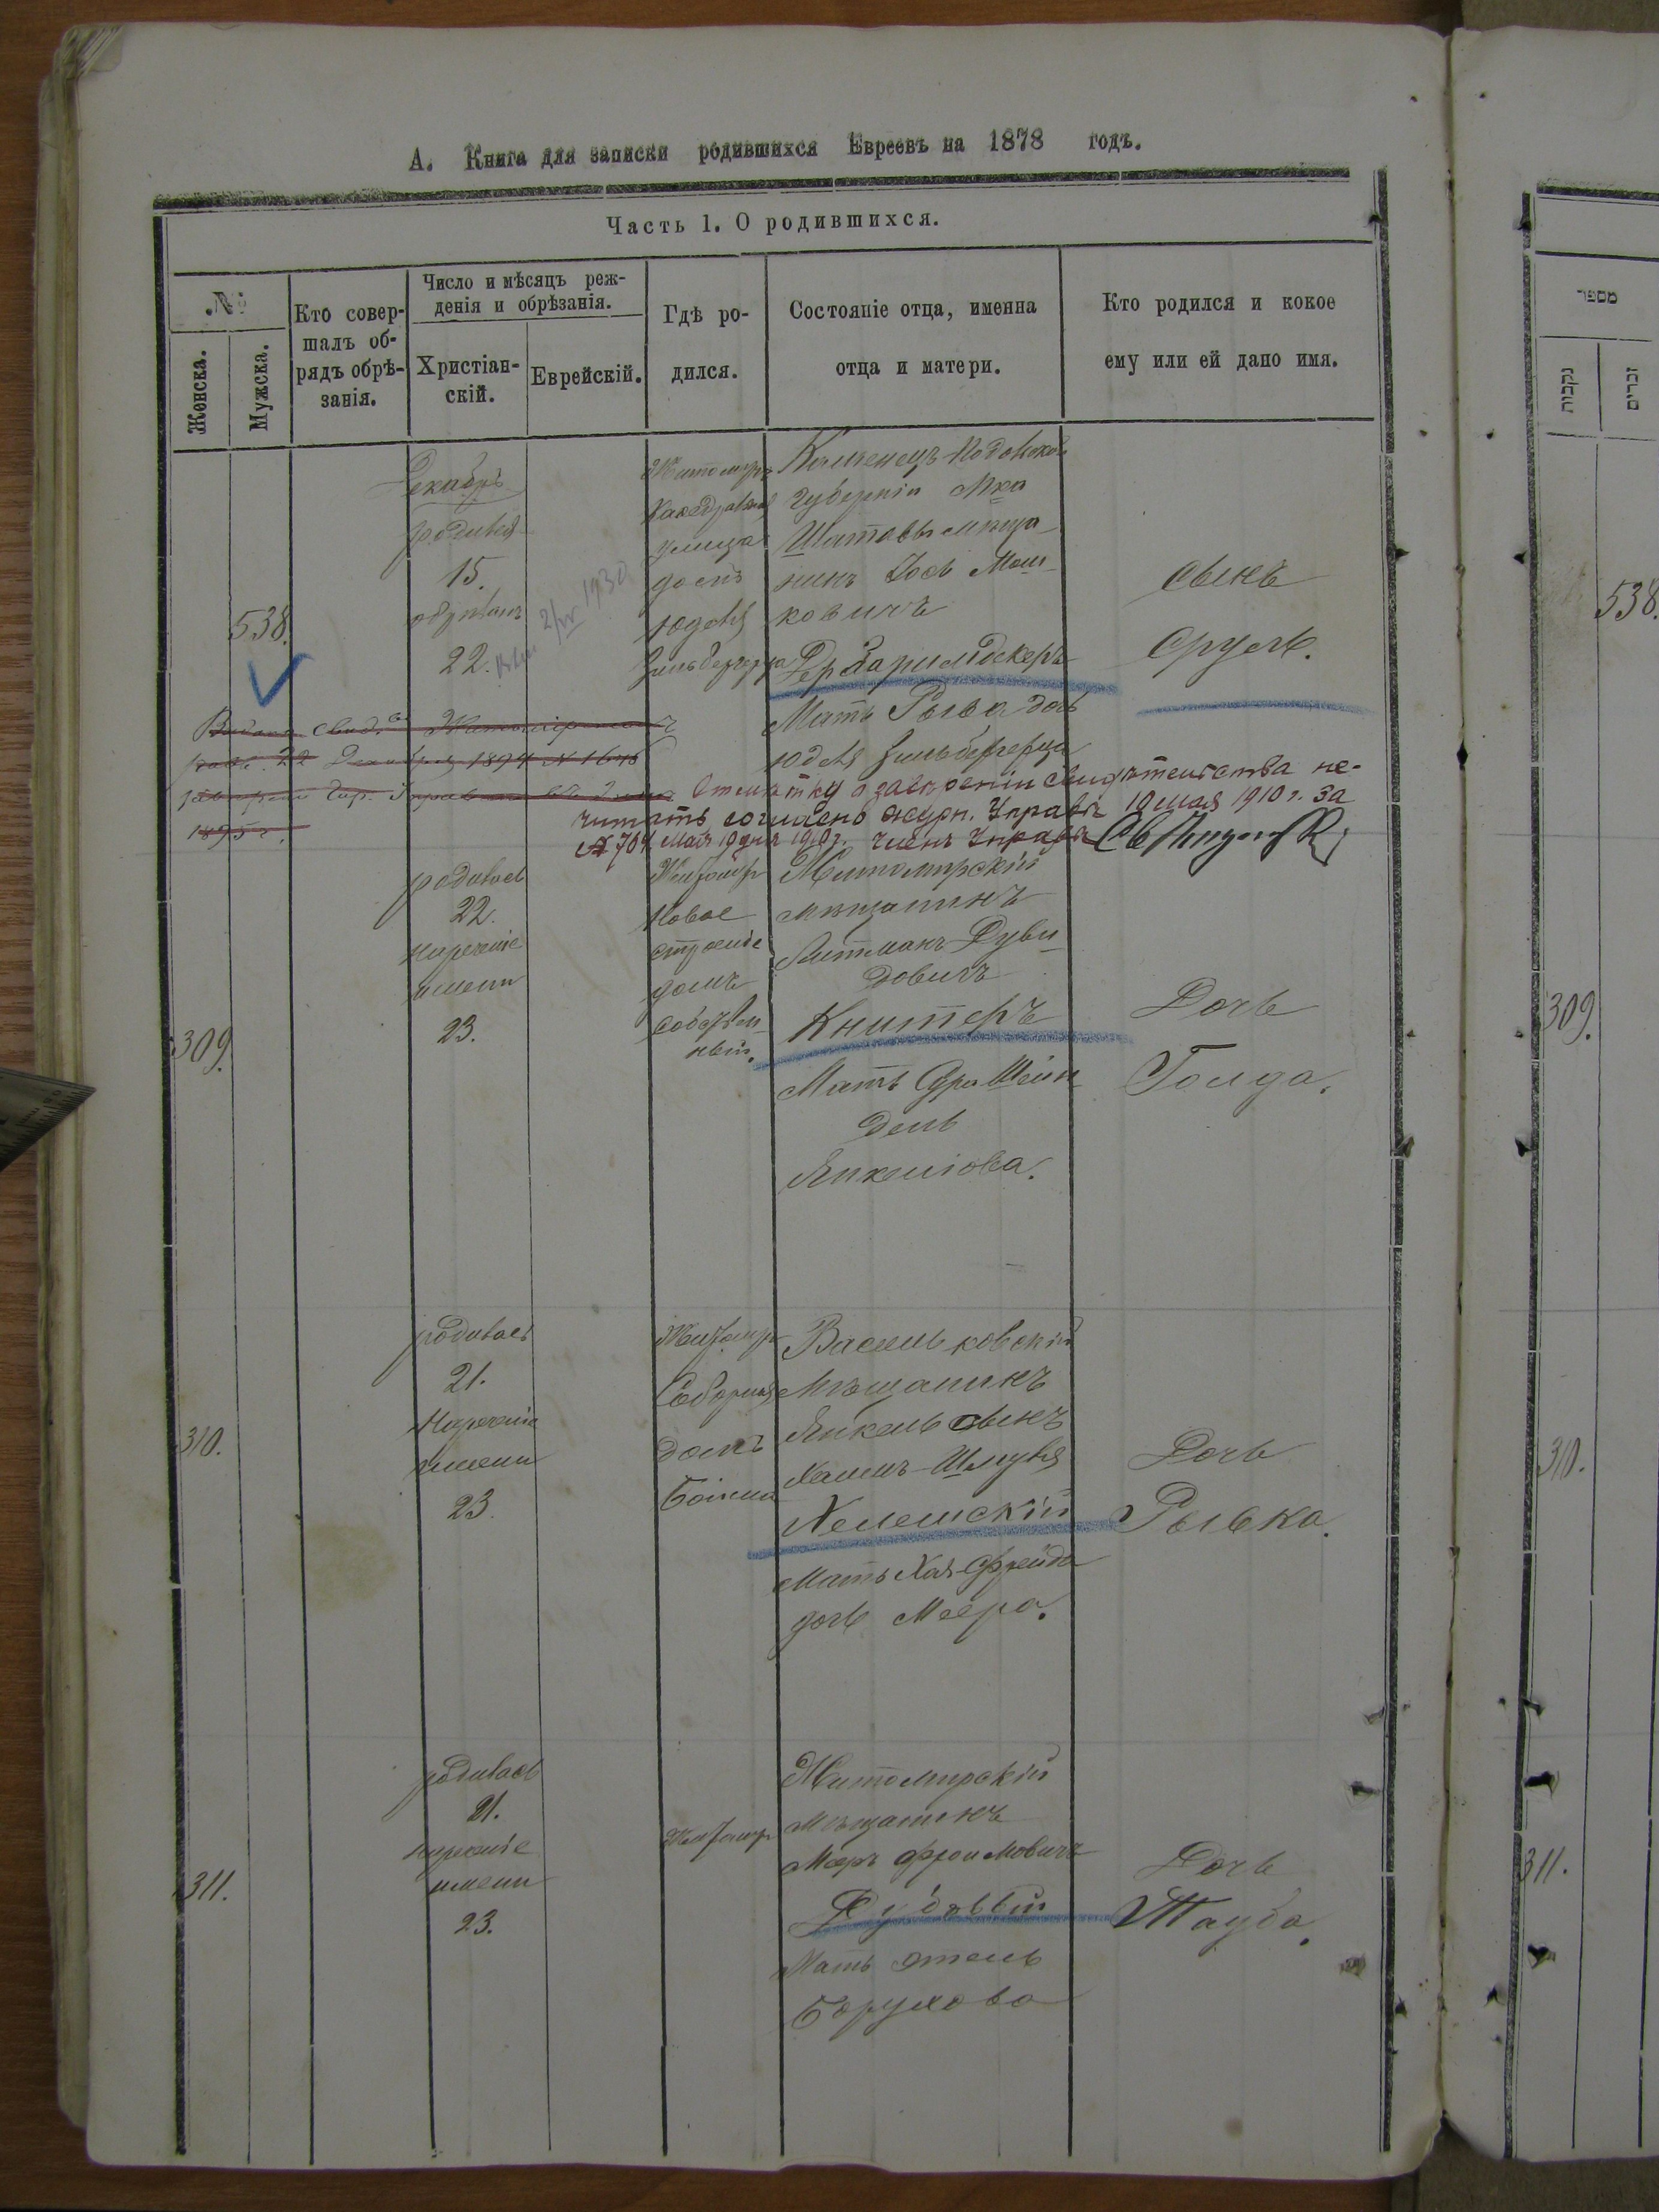 А. Книга для записки родившихся Евреевъ на 1878 годъ.
Часть 1. О родившихся.
№
Женска.
Мужска.
Кто совер-
шалъ об-
рядъ обрѣ-
занія.
Число и мѣсяцъ реж-
денія и обрѣзанія.
Христіан-
скій.
Еврейскій.
Гдѣ ро-
дился.
Состояніе отца, именна
отца и матери.
Кто родился и кокое
ему или ей дано имя.
538.
Декабрь
родился
15.
обрѣзанъ
22.
1930
Житомиръ
улица
домъ
Юделя
Зильбергерца
Каменецъ-Подольской
губерніи М-ка
Шатавы мѣща-
нинъ Іось Мош-
ковичъ
Мать Рывка дочь
Юделя Зильбергерца
сынъ
Сруль.
1894 № 1648
1895 г.
Отмѣтку о завѣреніи свидѣтельства не-
читать согласно журн. Управы 10 мая 1910 г. за
№ 704 Мая 19 дня 1910 г. Членъ Управы
309.
родилась
22.
нареченіе
имени
23.
Житомир
Новое
строеніе
домъ
собствен-
ный.
Житомирскій
мѣщанинъ
Литманъ Дуви-
довичъ
Книтеръ
Мать Сура Шейн
дель
Янкелова.
Дочь
Голда.
310.
родилась
21.
Нареченіе
имени
23.
Житомир
Соборная
домъ
Васильковскій
Мѣщанинъ
Янкель сынъ
Хаимъ-Шмуля
Хелемскій
Мать Хая-Фрейда
дочь Меера.
Дочь
Рывка.
311.
родилась
21.
нареченіе
имени
23.
Житомир
Житомирскій
Мѣщанинъ
Меръ Фроимовичъ
Дубовый
Мать Этель
Борухова
Дочь
Тауба.
מספר
נקבות
זכרים
538.
309.
310.
311.